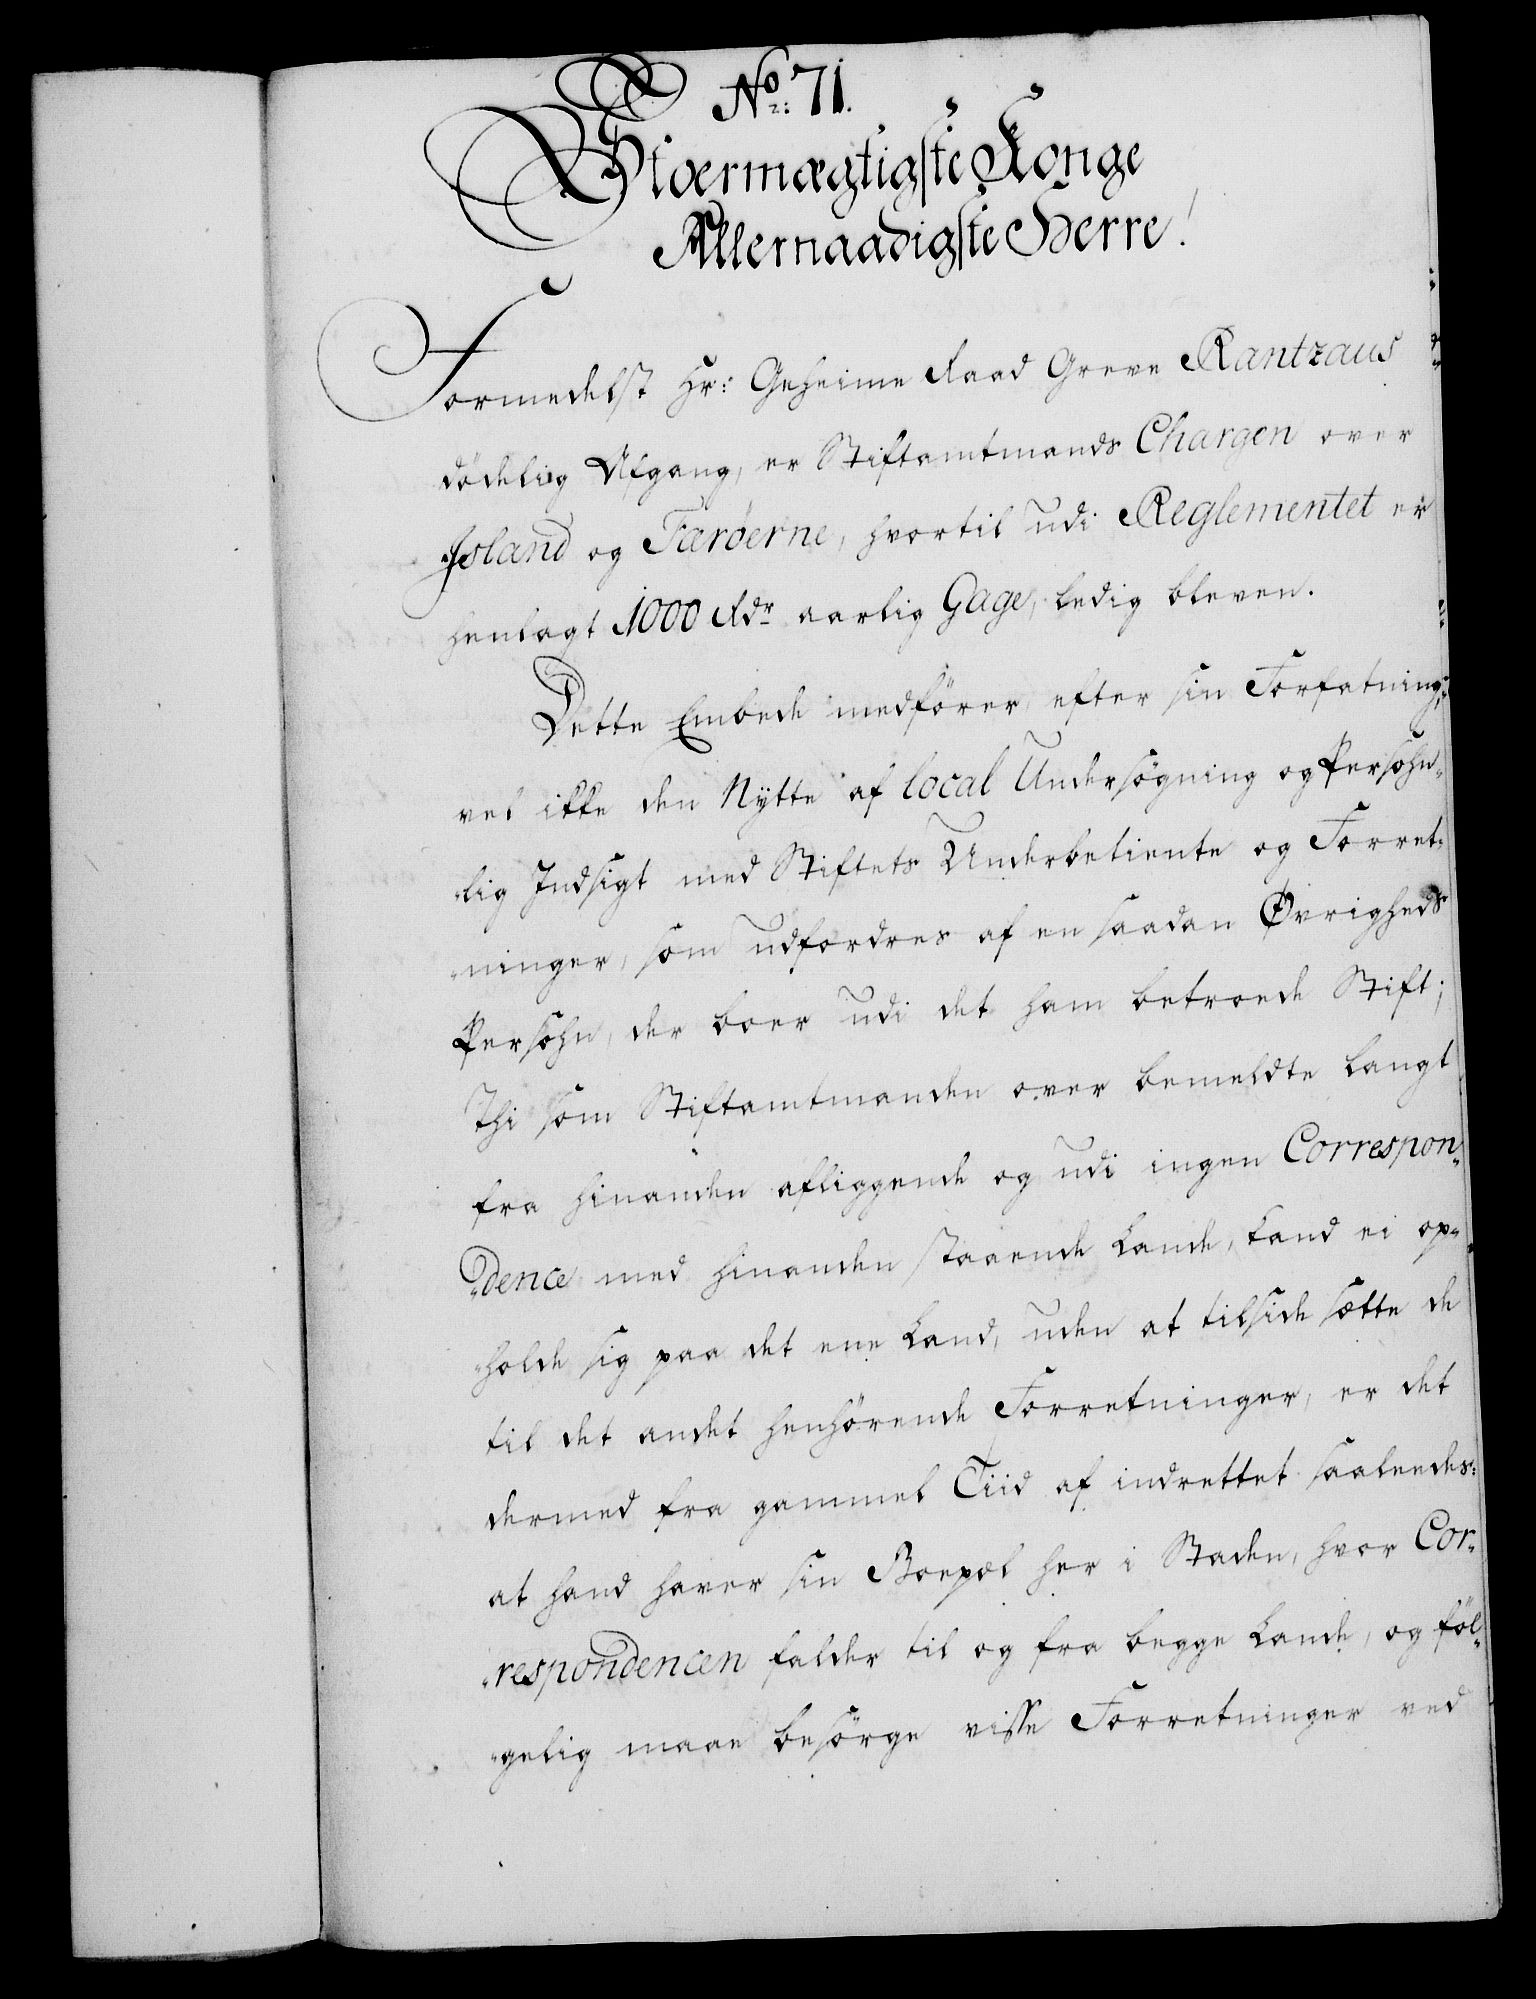 No: 71.
Stoermægtigste Konge
Allernaadigste Herre!
Formedelst Hr: Geheime Raad Greve Rantzaus
dödelig Afgang, er Stiftamtmands Chargen over
Island og Færöerne, hvortil udi Reglementet er
henlagt 1000 Rdr aarlig Gage, ledig bleven.
Dette Embede medförer, efter sin Forfatning,
vel ikke den Nytte af local Undersögning og Persohn-
-lig Indsigt med Stiftets Underbetiente og Forret-
-ninger, som udfordres af en saadan Øvrigheds
Persohn, der boer udi det ham betroede Stift;
Thi som Stiftamtmanden over bemeldte langt
fra hinanden afliggende og udi ingen Correspon-
-dence med hinanden staaende Lande, kand ei op-
-holde sig paa det ene Land, uden at tilside sætte de
til det andet henhörende Forretninger, er det
dermed fra gammel Tiid af indrettet saaledes:
at hand haver sin Boepæl her i Staden, hvor Cor-
-respondencen falder til og fra begge Lande, og föl-
-gelig maae besörge visse Forretninger ved